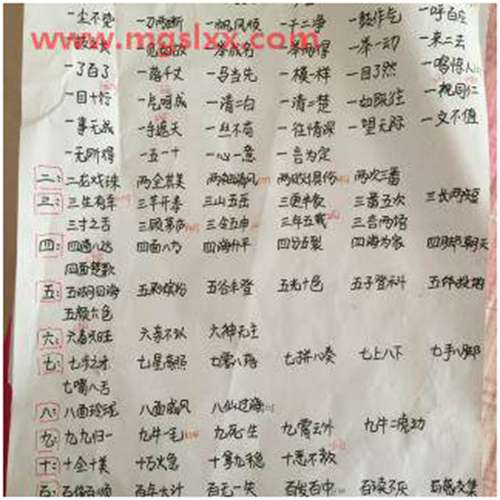 一尘不染 一刀两断 一帆风顺 一干二净 一鼓作气 一呼百应
www.mgslxx.com
一举一动 一来二去
一了百了 一落千丈 一马当先 一模一样 一目了然 一鸣惊人
一目十行 一气呵成 一清二白 一清二楚 一如既往 一视同仁
一事无成 一手遮天 一丝不苟 一往情深 一望无际 一文不值
一无所得 一五一十 一心一意 一言为定
二: 二龙戏珠 两全其美 两败俱伤
三: 三生有幸 三羊开泰 三山五岳 三更半夜 三番五次 三长两短
三寸之舌 三顾茅庐 三令五申 三年五载
四: 四通八达 四面八方 四海升平 四分五裂 四海为家 四脚朝天
四面楚歌
五: 五湖四海 五彩缤纷 五谷丰登 五光十色 五子登科 五体投地
五颜六色
六: 六畜兴旺 六亲不认 六神无主
七: 七步之才 七星高照 七零八落 七拼八凑 七上八下 七手八脚
七嘴八舌
八: 八面玲珑 八面威风 八仙过海
九: 九九归一 九牛一毛 九死一生 九霄云外 九牛二虎
十: 十全十美 十万火急 十拿九稳 十恶不赦
百: 百依百顺 百年大计 百无一失 百发百中 百读不厌